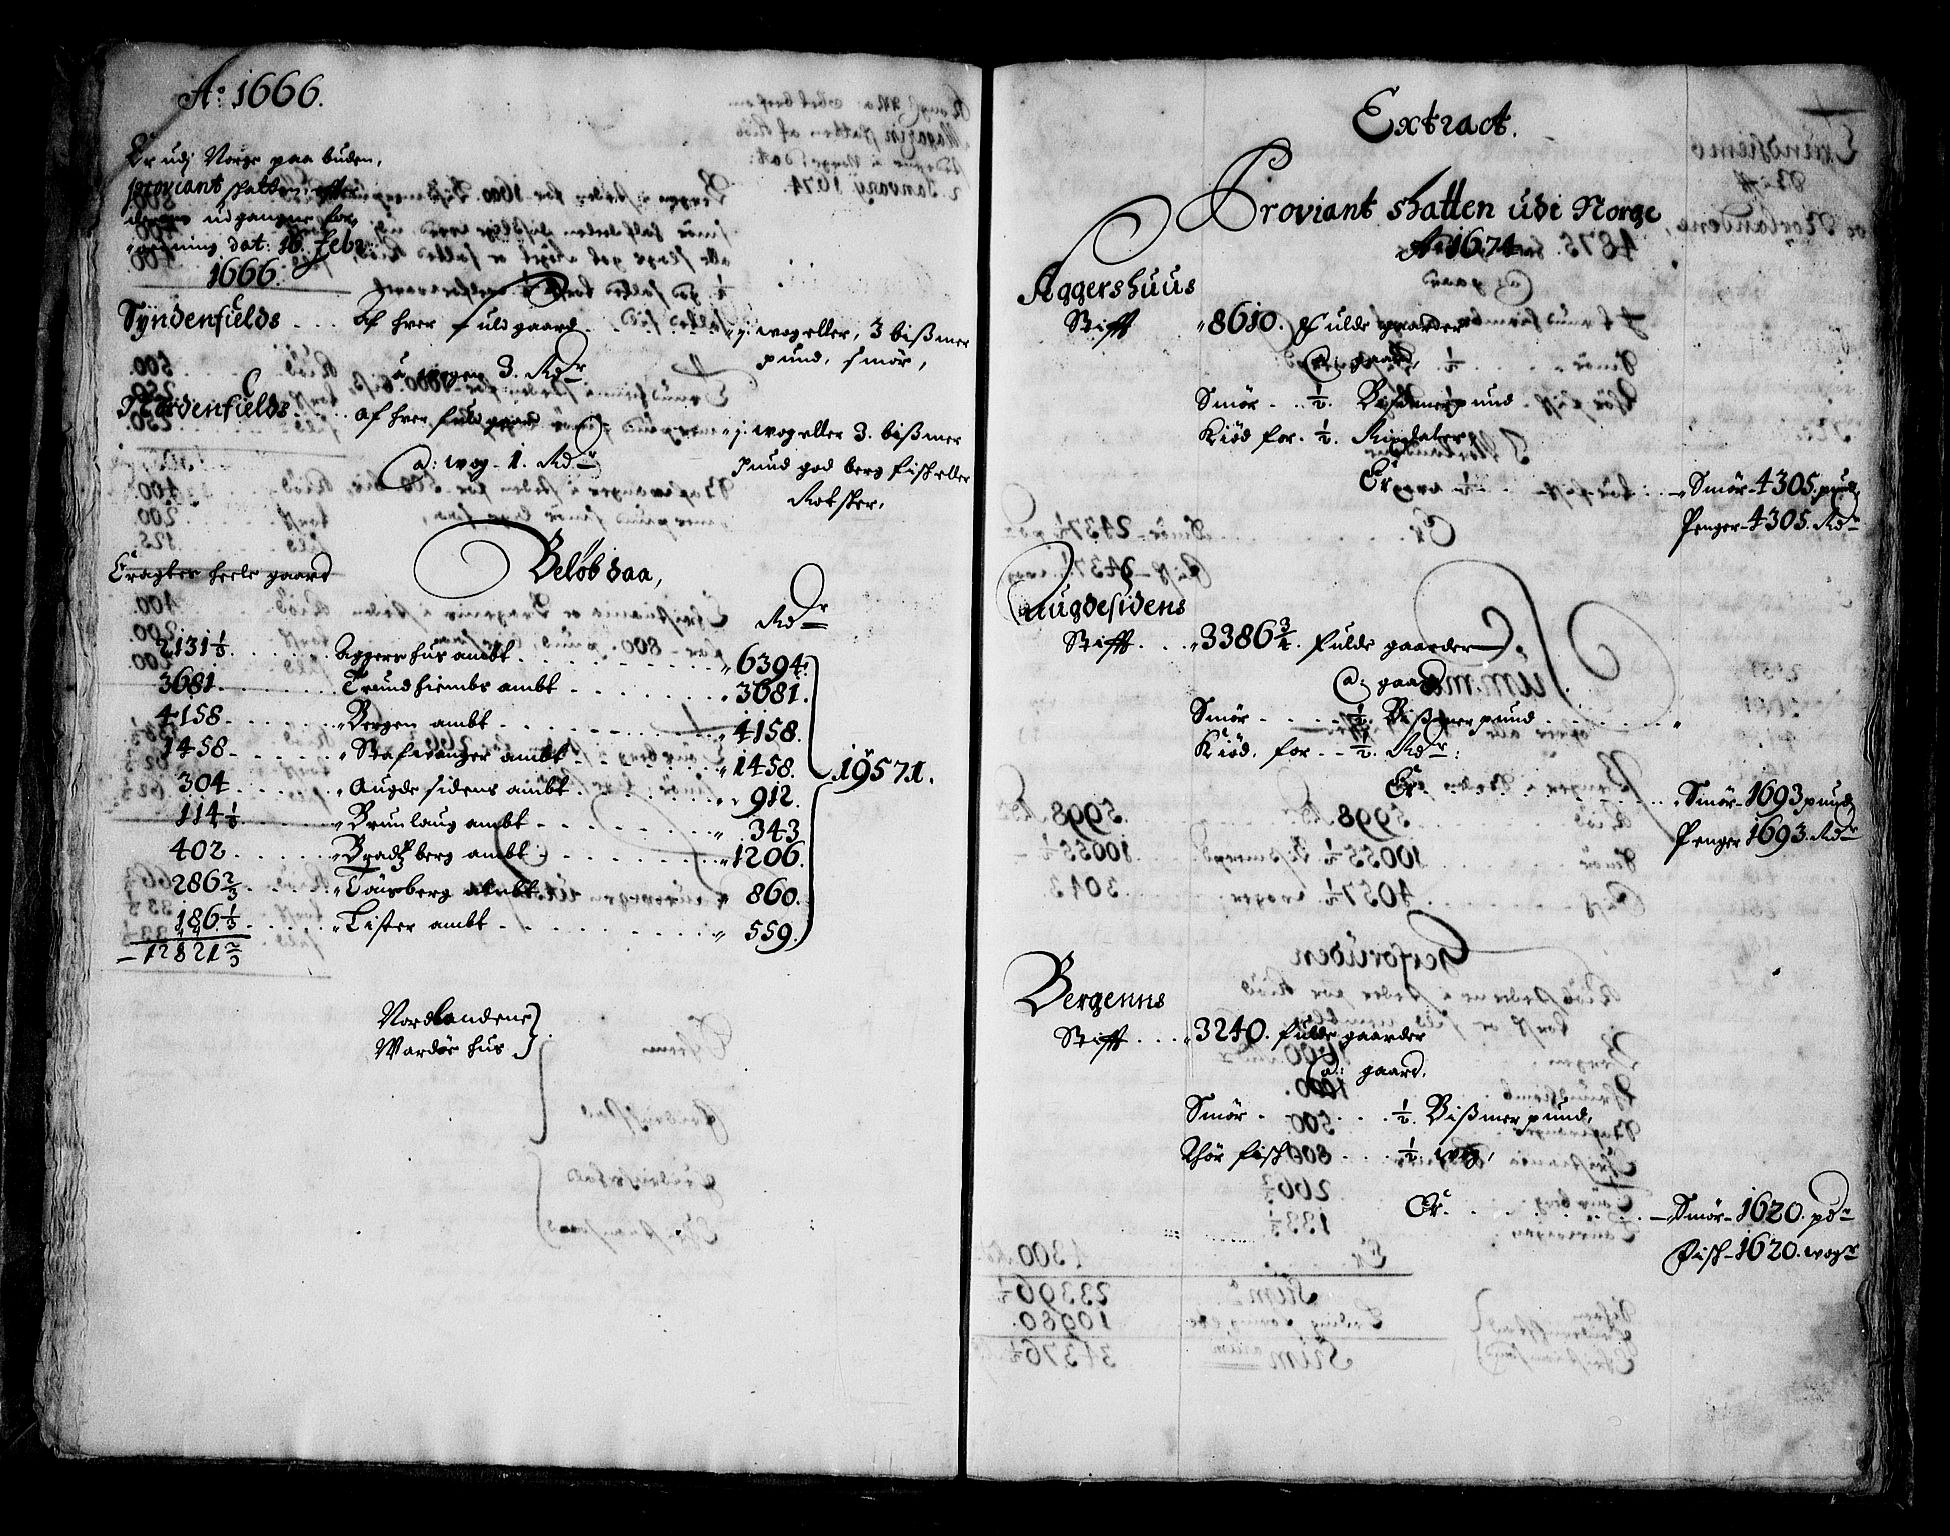 Ao 1666.
Er udj Norge paa buden,
proviant skatten, efter
denne udgangne for,
ordning dat: 16. Febr:
1666.
Syndenfields . . . af hver fuld gaard . . . 1. wog eller, 3 bißmer
pund, smør,
a wogen 3. Rdr
Nordenfields . . . af hver fuld gaard . . . 1. wog eller 3. bißmer
a: wog - 1. Rdr
pund god berg fisk eller
Rotsker,
Beløb daa,
heele gaard
Rdr
2131 1/3 . . . Aggershus ambt . . . 6394.
3681 . . . Trundhiembs ambt . . . 3681.
4158 . . . Bergen ambt . . . 4158.
1458 . . . Stafwanger ambt . . . 1458.
19571.
304 . . . Augdesidens ambt . . . 912.
114 1/3 . . . Brunlaug ambt . . . 343
402 . . . Bradsberg ambt . . . 1206.
286 2/3 . . . Tønsberg ambt . . . 860.
186 1/3 . . . Lister ambt . . . 559.
12821 2/3
Nordlandene
Wardøehus
Extract.
Proviant skatten udi Norge
Ao 1674
Aggershuus
Stifft
8610. Fulde gaarder
a: gaard,
Smør . . . 1/2. Bißmerpund
Kiød for . 1/2. Rixdaler,
Er . . . Smør - 4305. pund,
Penger - 4305. Rdr
Augdesidens
Stifft . . . 3386 3/4. Fulde gaarder
a: gaard
Smør . . . 1/2. Bißmer pund . . .
Kiød, for . . 1/2. Rdr:
Er . . . Smør - 1693 pund
Penger 1693. Rdr
Bergenns
Stifft . . . 3240. fulde gaarder
a: gaard,
Smør . . . 1/2. Bißmer pund,
Thør fisk . . . 1/2 wog,
Er . . . Smør - 1620. pdr
Fisk - 1620. wogr